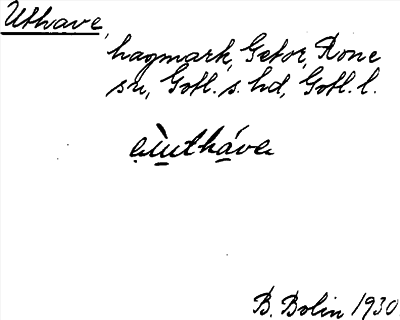 Uthave,
hagmark, Getor, Rone
sn, Gotl. s. hd, Gotl. l.
B. Bolin 1930